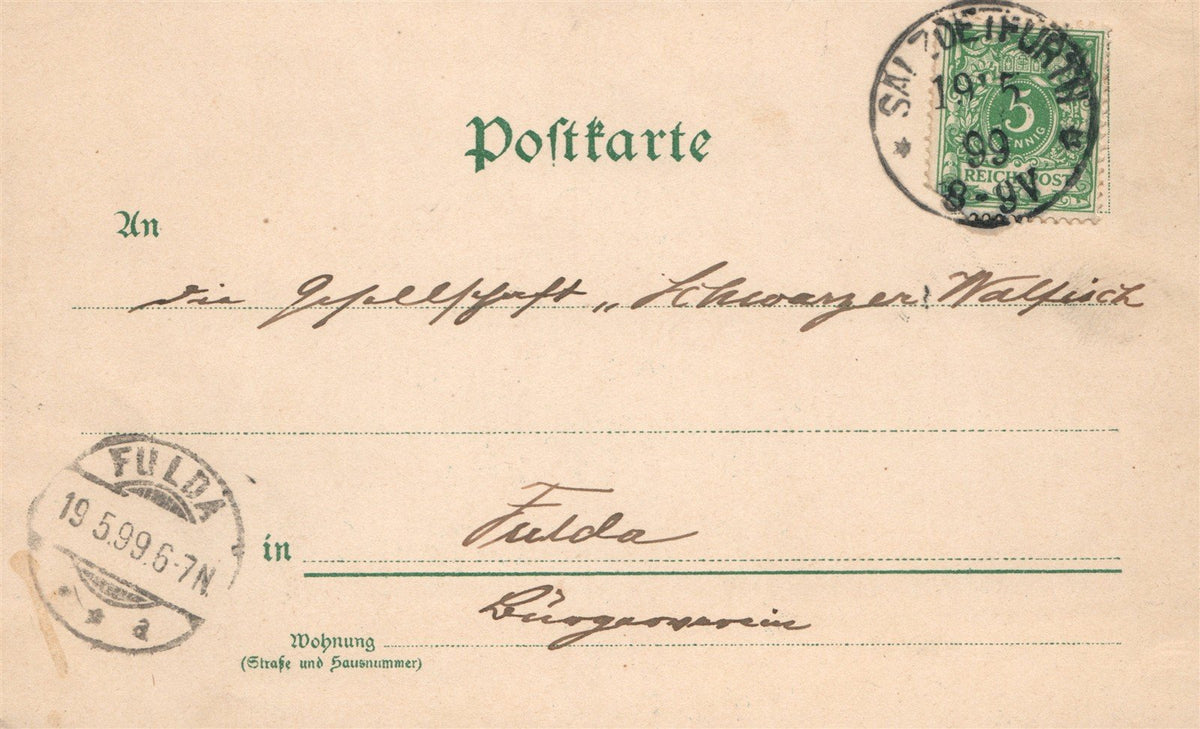 Postkarte
SALZDETFURTH
19 5
99
8-9V
5
PFENNIG
REICHSPOST
An
die Gesellschaft „Schwarzer Walfisch
FULDA
19 5.99.6-7N
a
in Fulda
Bürgerverein
Wohnung
(Straße und Hausnummer)